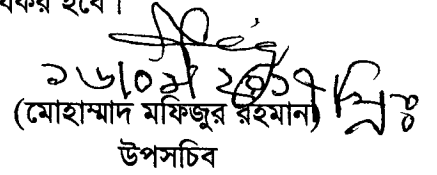 হবে।
১৬/০৯/২০১৭ খ্রিঃ
(মোহাম্মাদ মফিজুর রহমান)
উপসচিব